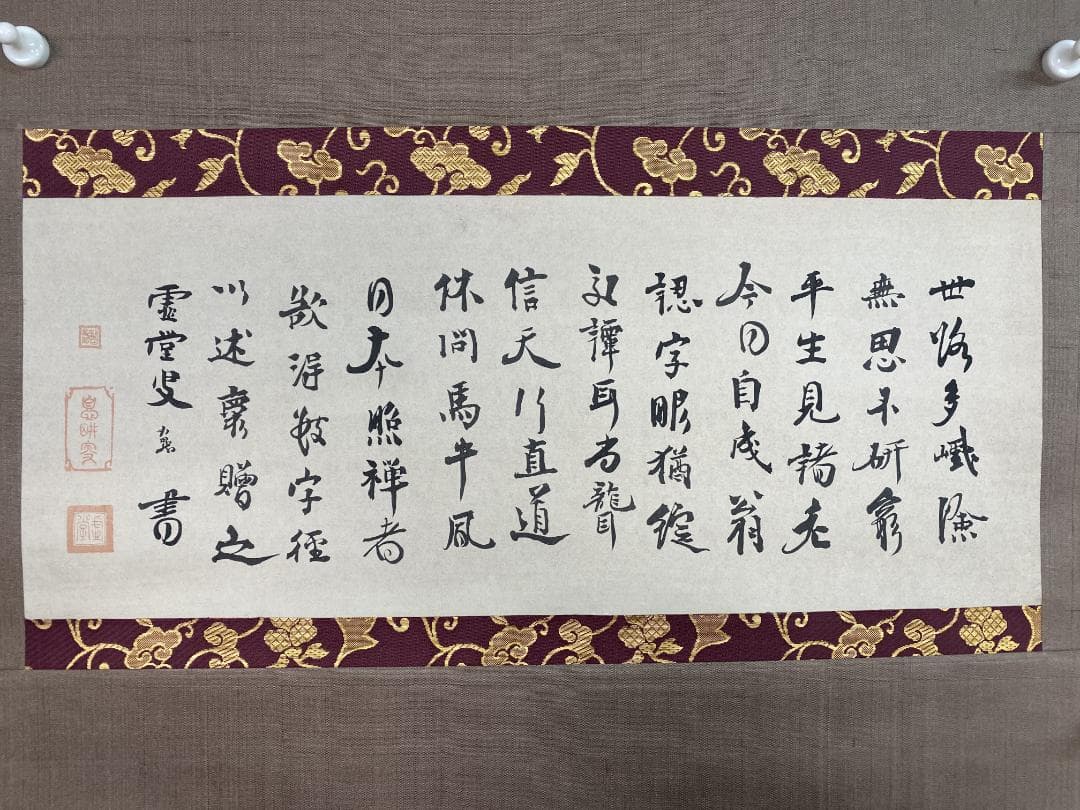 世路多巇險
無思不研窮
平生見諸老
今日自成翁
認字眼猶綻
交譚耳尚聾
信天行直道
休問馬牛風
日本照禅者
欲得數字徑
以述懷贈之
虚堂叟智愚書
息耕叟
虚堂